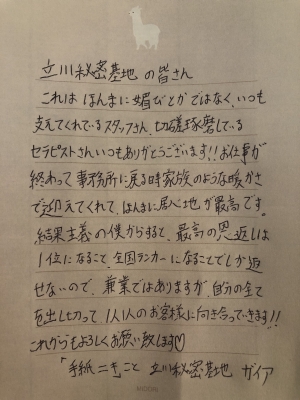 立川秘密基地の皆さん
これはほんまに媚びとかではなく、いつも
支えてくれているスタッフさん、切磋琢磨している
セラピストさんいつもありがとうございます!!お仕事が
終わって事務所に戻る時家族のような暖かさ
で迎えてくれて、ほんまに居心地が最高です。
結果主義の僕からすると、最高の恩返しは
1位になること、全国ランカーになることでしか返
せないので、兼業ではありますが、自分の全て
を出し切って1人1人のお客様に向き合っていきます!!
これからもよろしくお願い致します♡
「手紙ニキ」こと 立川秘密基地 ガイア
MIDORI